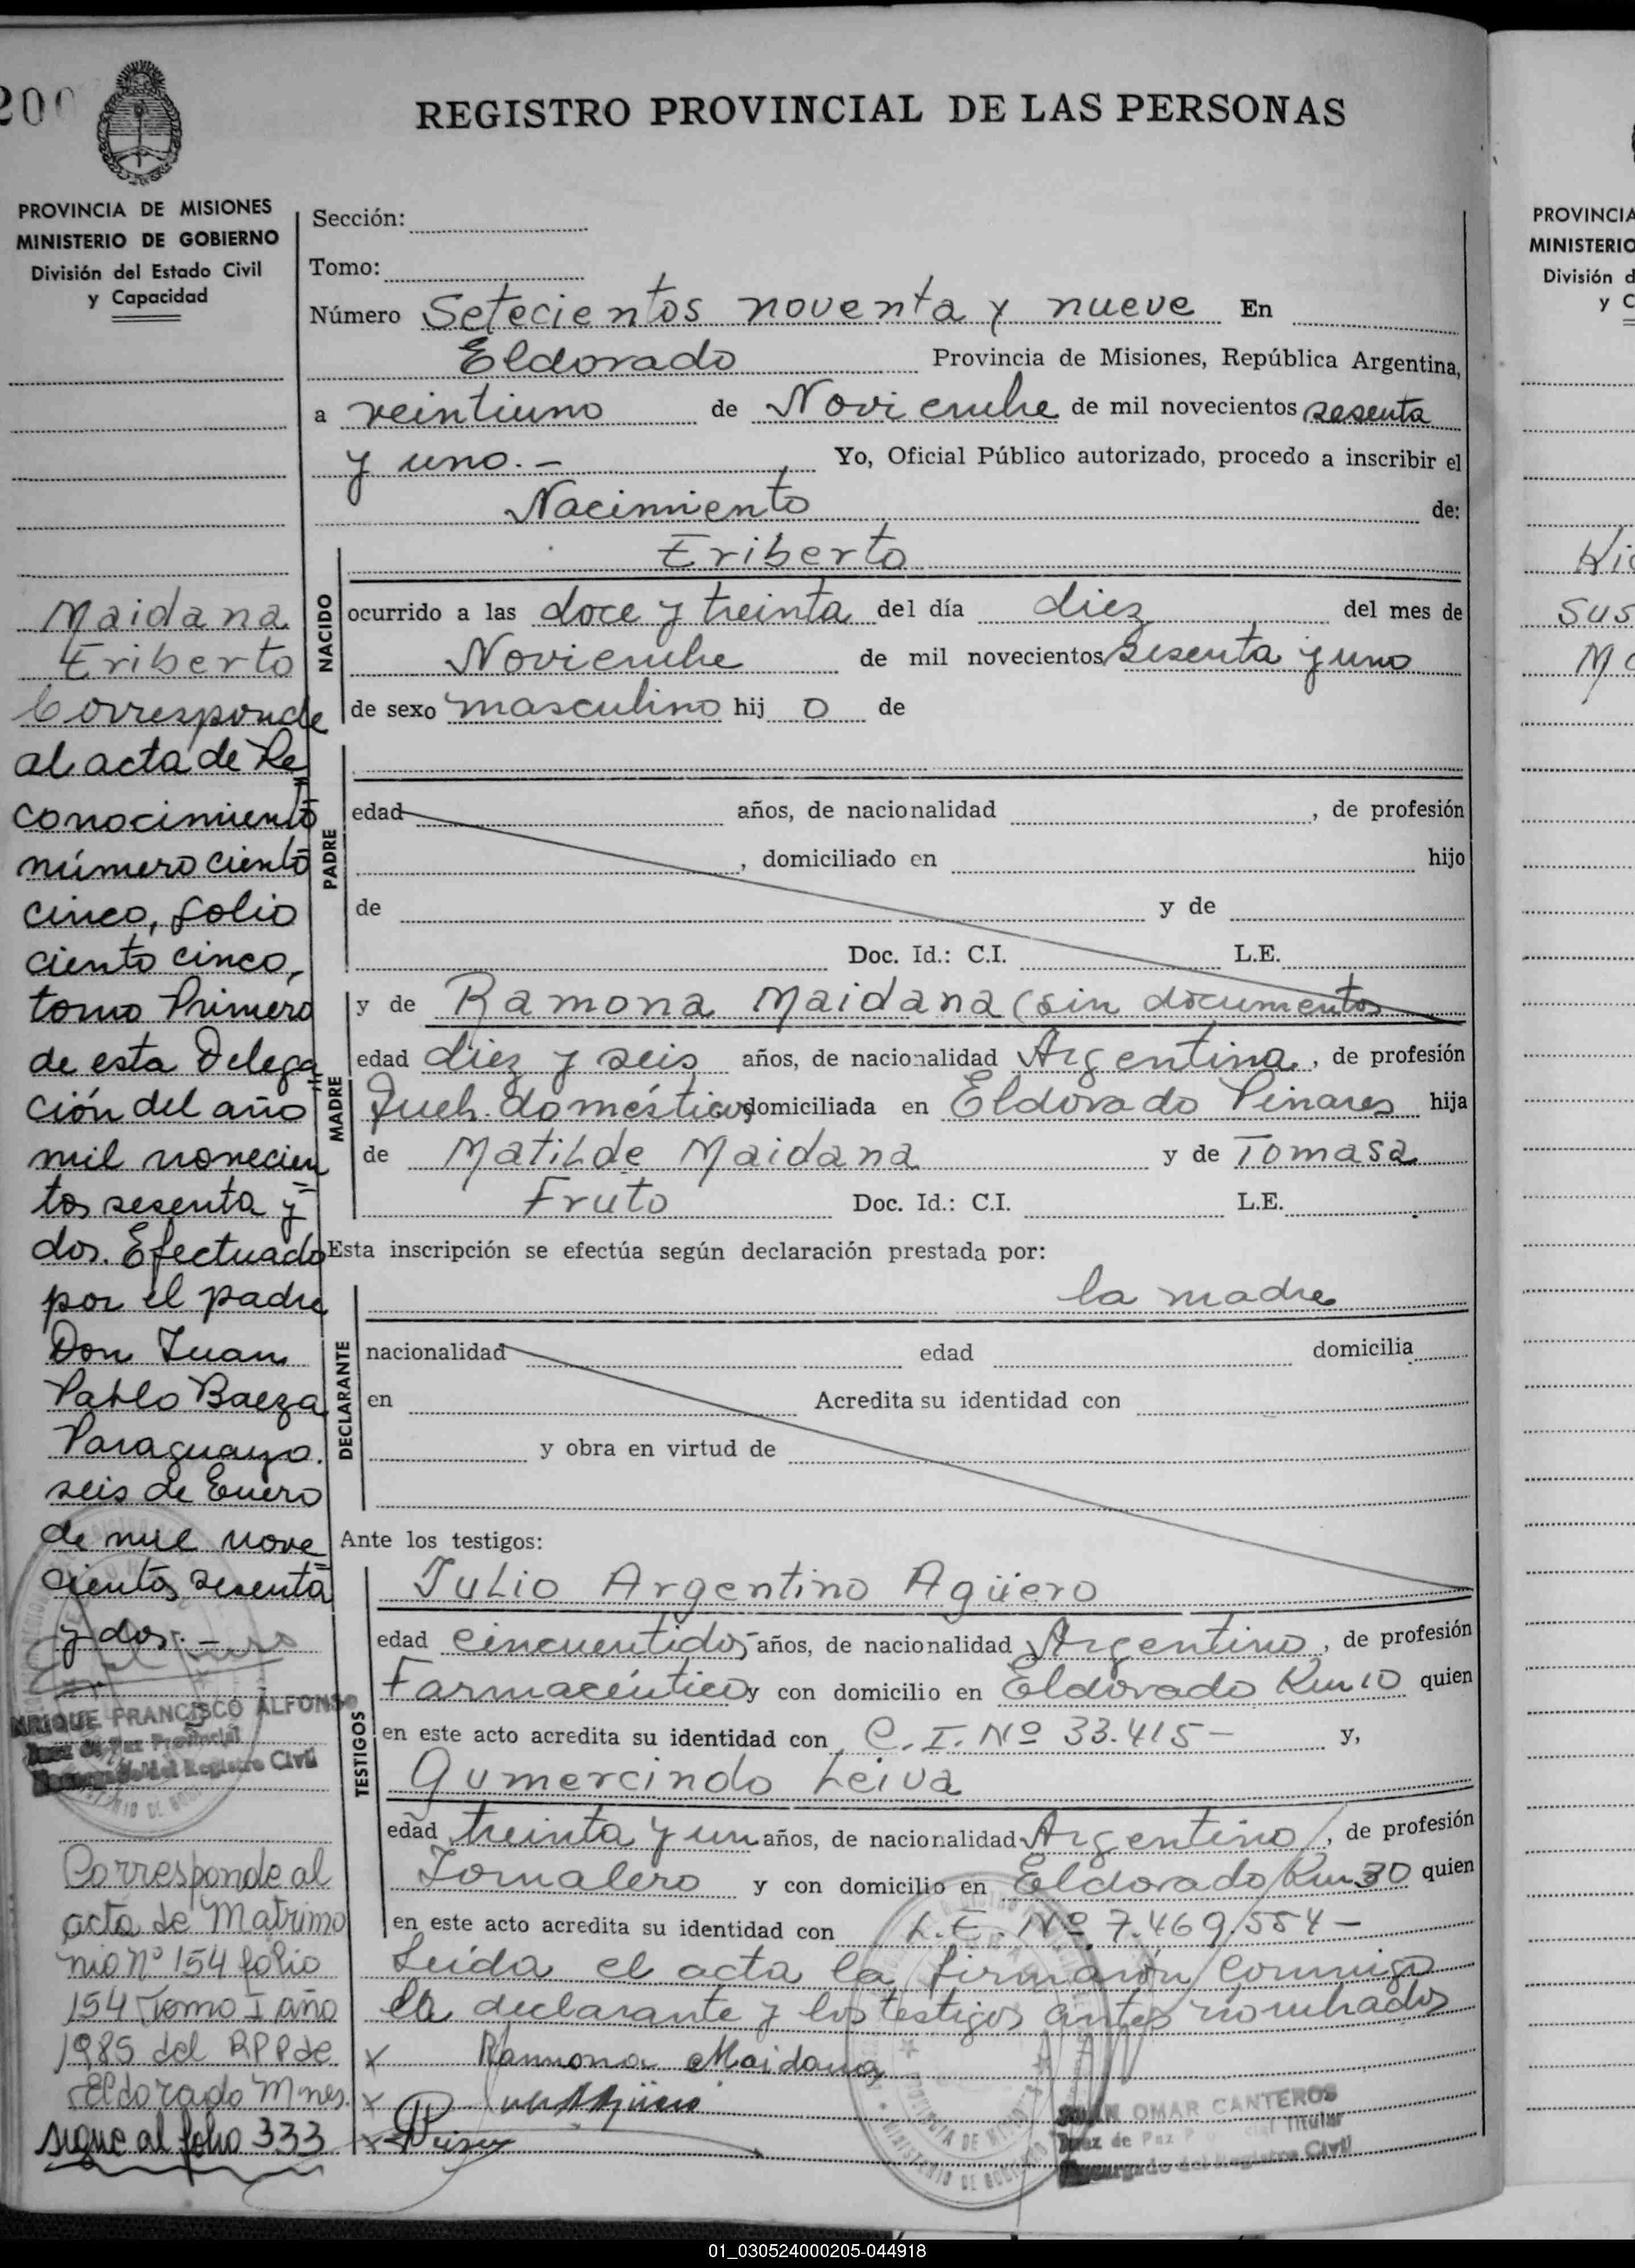 200
REGISTRO PROVINCIAL DE LAS PERSONAS
PROVINCIA DE MISIONES
MINISTERIO DE GOBIERNO
División del Estado Civil
y Capacidad
Maidana
Eriberto
Corresponde
al acta de Re
conocimiento
número ciento
cinco, folio
ciento cinco,
tomo Primero
de esta Delega
ción del año
mil novecien
tos sesenta y
dos. Efectuado
por el padre
Don Juan
Pablo Baeza
Paraguayo.
seis de Enero
de mil nove
cientos sesenta
y dos.-
ENRIQUE FRANCISCO ALFONSO
Juez de Paz Provincial
Encargado del Registro Civil
Corresponde al
acta de Matrimo
nio nº 154 folio
154 Tomo I año
1985 del RPP de
Eldorado Mnes.
sigue al folio 333
Sección:
Tomo:
Número Setecientos noventa y nueve En
Eldorado Provincia de Misiones, República Argentina,
a veintiuno de Noviembre de mil novecientos sesenta
y uno.- Yo, Oficial Público autorizado, procedo a inscribir el
Nacimiento de:
NACIDO
Eriberto
ocurrido a las doce y treinta del día diez del mes de
Noviembre de mil novecientos sesenta y uno
de sexo masculino hij o de
PADRE
edad años, de nacionalidad , de profesión
, domiciliado en hijo
de y de
Doc. Id.: C.I. L.E.
MADRE
y de Ramona Maidana (sin documentos
edad diez y seis años, de nacionalidad Argentina, de profesión
Queh. domésticos domiciliada en Eldorado Pinares hija
de Matilde Maidana y de Tomasa
Fruto Doc. Id.: C.I. L.E.
Esta inscripción se efectúa según declaración prestada por:
DECLARANTE
la madre
nacionalidad edad domicilia
en Acredita su identidad con
y obra en virtud de
Ante los testigos:
TESTIGOS
Julio Argentino Agüero
edad cincuentidos años, de nacionalidad Argentino, de profesión
Farmacéutico y con domicilio en Eldorado Km 10 quien
en este acto acredita su identidad con C.I. Nº 33.415- y,
Gumercindo Leiva
edad treinta y un años, de nacionalidad Argentino, de profesión
Jornalero y con domicilio en Eldorado Km 30 quien
en este acto acredita su identidad con L.E. Nº 7.469.554-
Leída el acta la firmaron conmigo
la declarante y los testigos antes nombrados
x Ramona Maidana
x
x
JUAN OMAR CANTEROS
Juez de Paz Titular
Encargado del Registro Civil
PROVINCIA DE MISIONES
MINISTERIO DE GOBIERNO
PROVINCIA
MINISTERIO
División d
y C
Sus
01_030524000205-044918